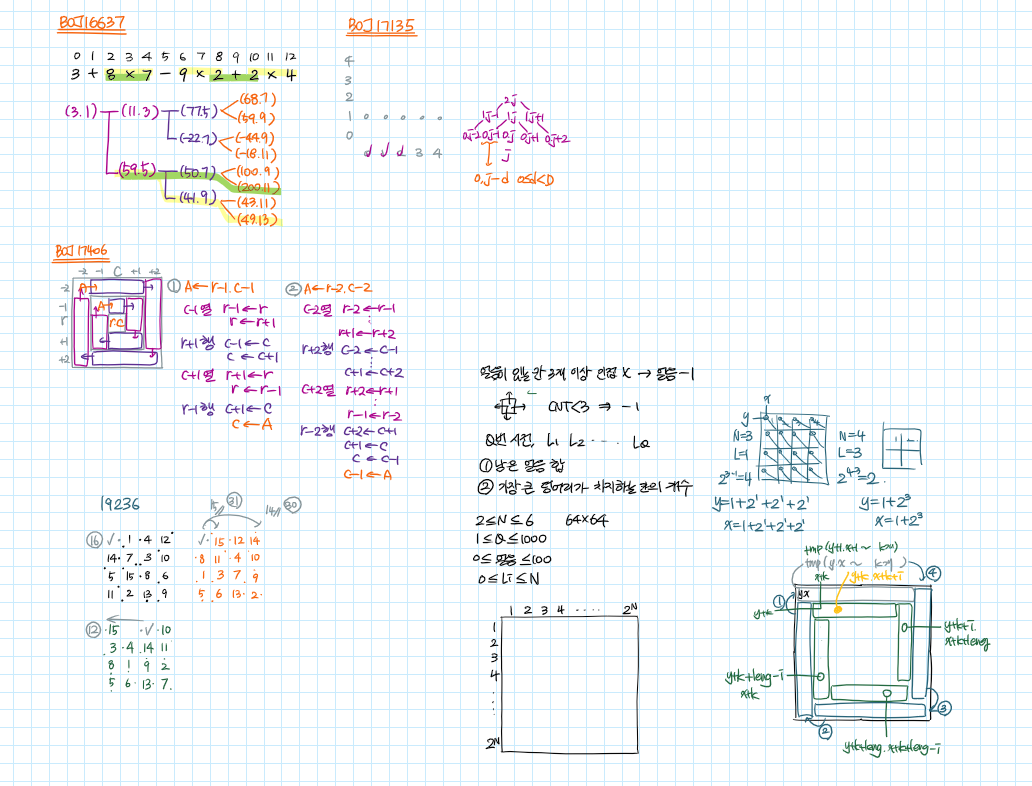 BOJ16637
0 1 2 3 4 5 6 7 8 9 10 11 12
3 + 8 × 7 - 9 × 2 + 2 × 4
(3.1) (11.3) (77.5) (68.7)
(59.9)
(-22.7) (-44.9)
(-18.11)
(59.5) (50.7) (100.9)
(200.11)
(41.9) (43.11)
(49.13)
BOJ17135
4
3
2
1 o o o o o
0
d d d 3 4
2j
1j-1 1j 1j+1
0j-2 0j-1 0j 0j+1 0j+2
j
0,j-d 0≤d<D
BOJ17406
-2 -1 C +1 +2
-2
-1
r
+1
+2
A
A
r.c
① A←r-1.C-1
C-1열 r-1←r
r←r+1
r+1행 C-1←C
C←C+1
C+1열 r+1←r
r←r-1
r-1행 C+1←C
C←A
② A←r-2.C-2
C-2열 r-2←r-1
r+1←r+2
r+2행 C-2←C-1
C+1←C+2
C+2열 r+2←r+1
r-1←r-2
r-2행 C+2←C+1
C+1←C
C←C-1
C-1←A
얼음이 있는 칸 3개 이상 인접 X → 얼음-1
CNT<3 ⇒ -1
Q번 시전, L1 L2 ···· LQ
① 남은 얼음 합
② 가장 큰 덩어리가 차지하는 칸의 개수
2≤N≤6 64×64
1≤Q≤1000
0≤얼음≤100
0≤Li≤N
1 2 3 4 ···· 2ᴺ
1
2
3
4
2ᴺ
x
y
N=3
L=1
2³⁻¹=4
y=1+2¹+2¹+2¹
x=1+2¹+2¹+2¹
N=4
L=3
2⁴⁻³=2
y=1+2³
x=1+2³
yx
① ② ③ ④
y+k
x+k
y+k.x+k+i
y+k+i.
x+k+leng
y+k+leng-i
x+k
y+k+leng.x+k+leng-i
19236
15 ㉛
14 ㉚
⑯ ✓ 1 4 12
14 7 3 10
5 15 8 6
11 2 13 9
✓ 15 12 14
8 11 4 10
1 3 7 9
5 6 13 2
⑫ 15 ✓ 10
3 4 14 11
8 1 9 2
5 6 13 7